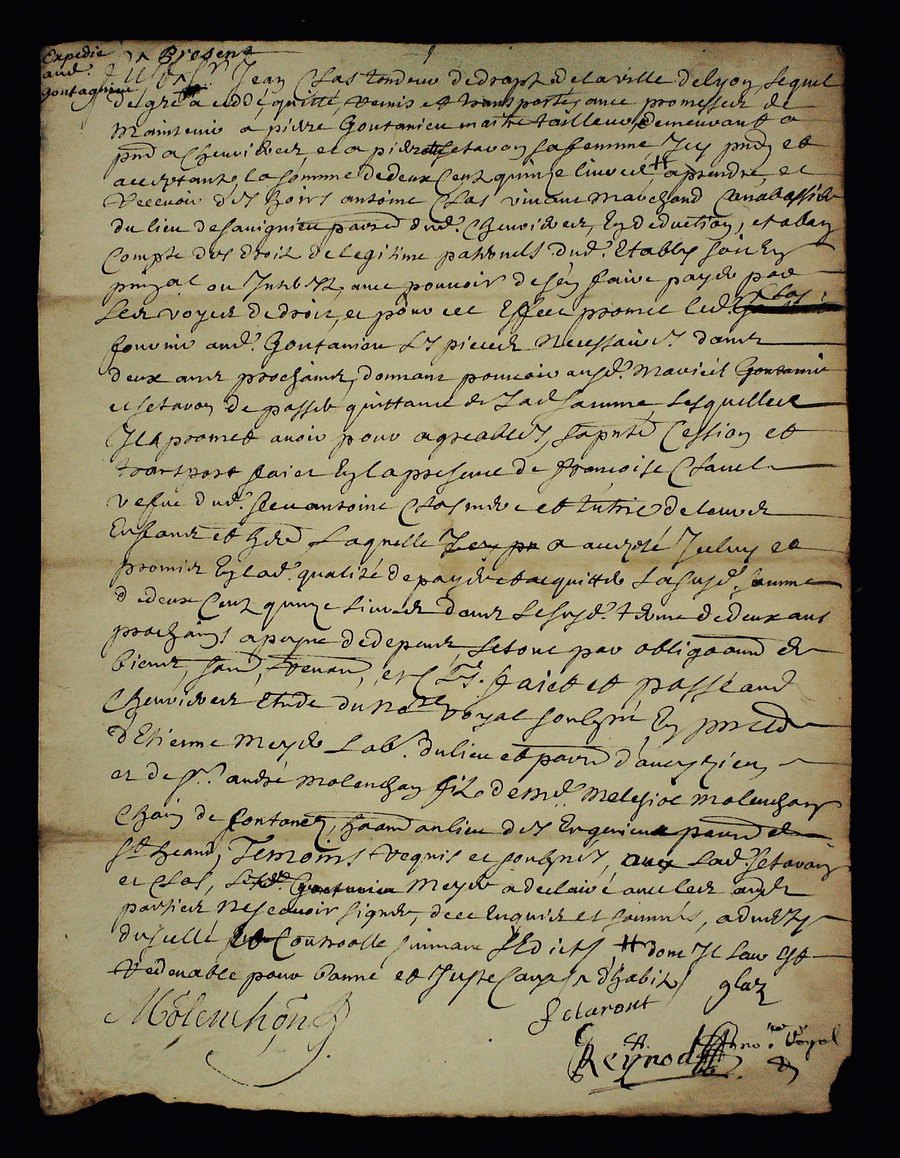 Expedié
aud.
goutagnieu
Presens
Jean Clas tondeur de drapt de la ville de lyon lequel
de gré a ceddé, quitté, remis et transporté, avec promesse de
maintenir a pierre Goutanieu maitre tailleur, demeurant a
Chevrieres, et a pierrette setavon sa femme Icy pnts et
acceptants, la somme de deux Cent quinze livres # a prendre, et
recevoir des hoirs antoine Clas vivant marchand
du lieu de savignieu parr. dud. Chevrieres, En deduction, et a bon
Compte des droit de legitime paternels dud.
ou Interest, avec pouvoir de s'en faire payer par
les voyes de droit, et pour cet Effet promet led. Clas
fournir aud. Goutanieu les pieces necessaires dans
deux ans prochains, donnant pouvoir ausd. mariés Goutanieu
et setavon de passer quittance de lad. somme lesquelles
Il promet avoir pour agreables, la pnte Cession et
transport faict En la presence de francoise Chanel
vefve dud. feu antoine Clas mere et tutrice de leurs
Enfans et laquelle a accepté Iceluy et
promis En lad. qualité de payer et acquitter la susd. somme
de deux Cent quinze livres dans le susd. terme de deux ans
prochains a peyne de depens, le tout par obligaon de
biens, et Clses. faict et passé aud.
Chevrieres Etude du nore royal soubzné En pnce
d'Etienne meyer lab. du lieu et parr. d'aveyzieu
et de sr. andré molenchon fils de me. melchior molenchon
de fontanes, au lieu des parr. de
st. heand, Temoins requis et soubznés, lad. setavon
et Clas, meyer a declairé avec les autres
parties ne scavoir signer, de ce Enquis et sommés, advertys
du sellé et Controolle suivant l'Edict # dont Il leur Est
redevable pour bonne et Juste Cause
Molenchon
setavont
glas
Reynod no.re Royal